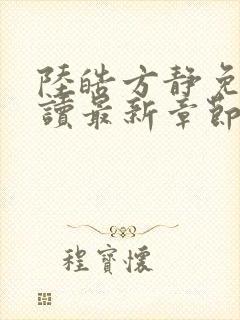 陸皓方靜免
讀最新章節
程寶懷